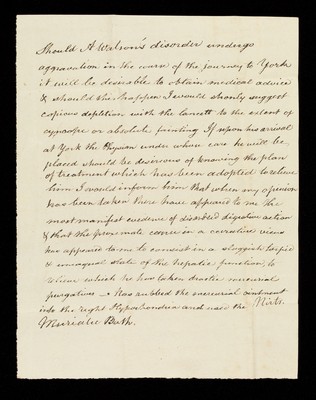 Should A Watson's disorder undergo
aggravation in the course of the journey to York
it will be desirable to obtain medical advice
& should this happen I would shortly suggest
copious depletion with the lancet to the extent of
syncope or absolute fainting If upon his arrival
at York the Physician under whose care he will be
placed should be desirous of knowing the plan
of treatment which has been adopted to relieve
him I would inform him that when my opinion
has been taken there have appeared to me the
most manifest evidence of disordered digestive action
& that the proximate cause in a curative view
has appeared to me to consist in a sluggish torpid
& unnatural state of the hepatic function, to
relieve which he has taken drastic mercurial
purgatives — has rubbed the mercurial ointment
into the right Hypochondria and used the Nitro
Muriatic Bath.